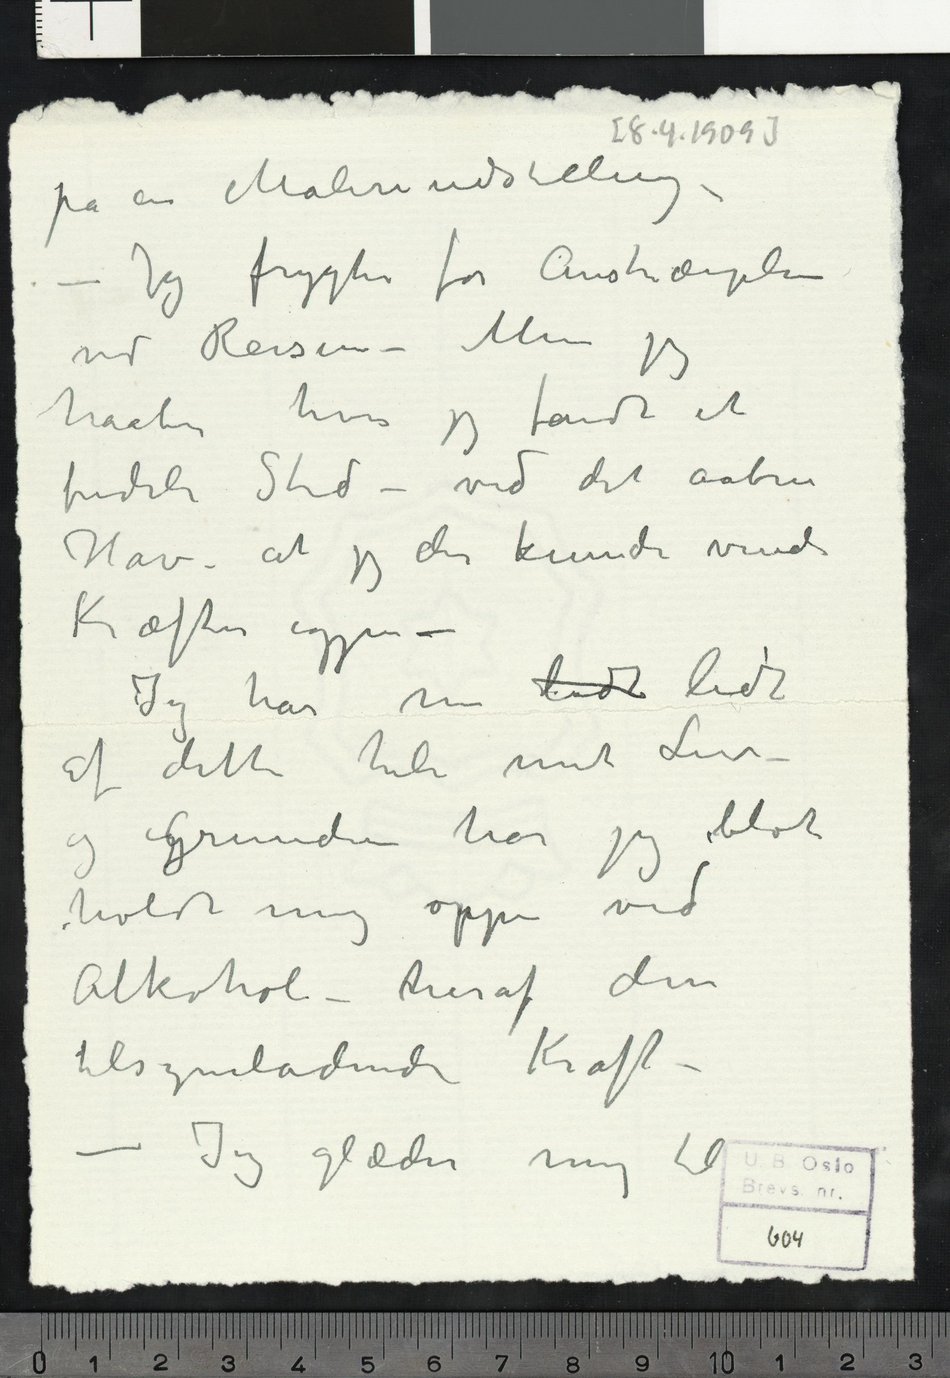 [8.4.1909]
på en Maleriudstilling –
– Jeg frygter for Anstrængelsen
ved Reisen – Men jeg
haaber hvis jeg fandt et
fredeli Sted – ved det aabne
Hav – at jeg der kunde vinde
Kræfter igjen –
Jeg har nu lidt lidt
af dette hele mit Liv –
og igrunden har jeg blot
holdt mig oppe ved
Alkohol – heraf den
tilsyneladende Kraft –
– Jeg glæder mig til
U. B. Oslo
Brevs. nr.
604
0 1 2 3 4 5 6 7 8 9 10 1 2 3